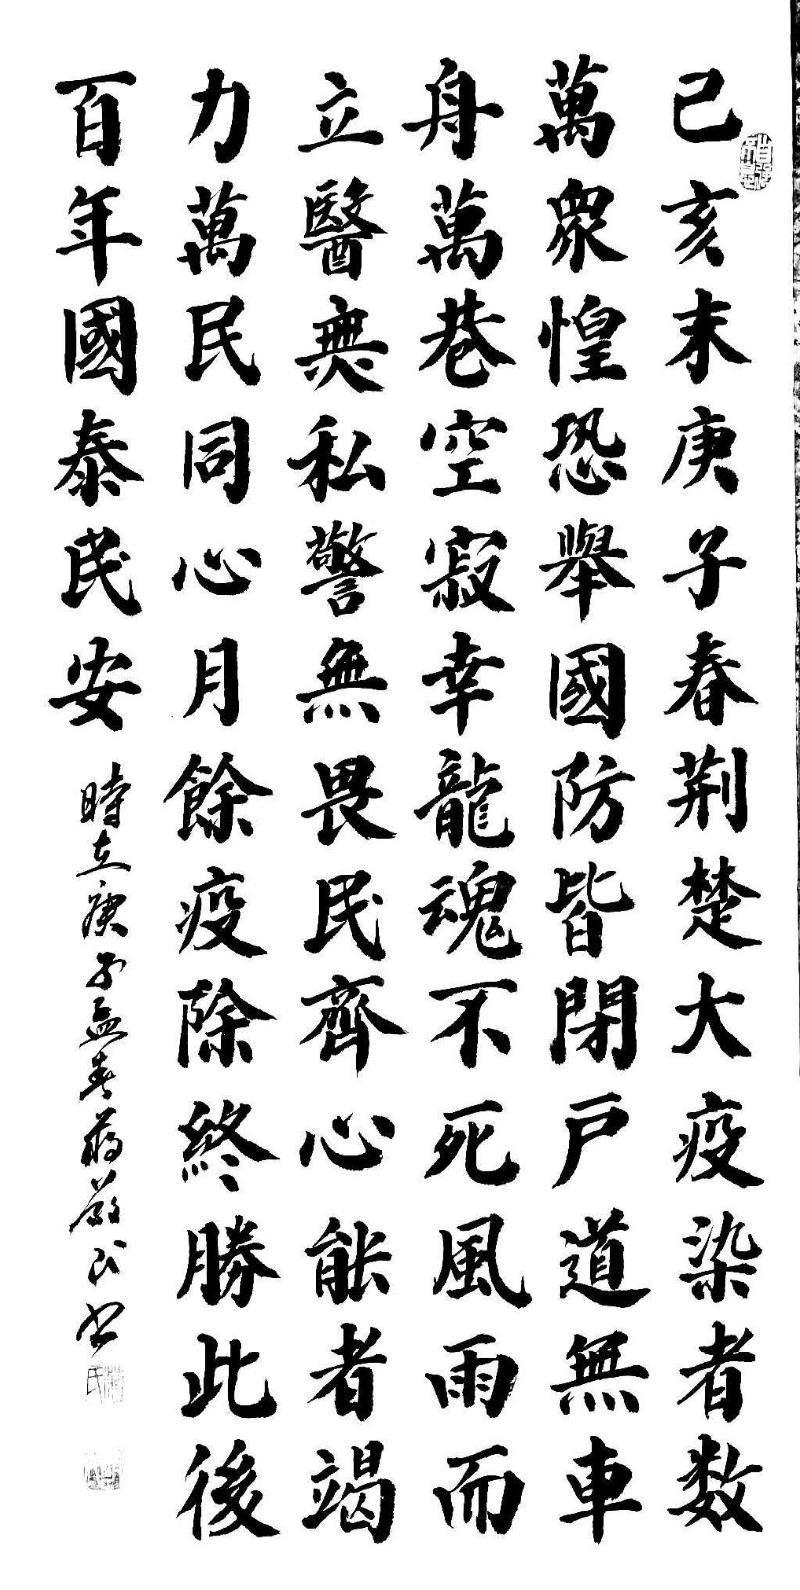 己亥末庚子春荆楚大疫染者数
萬衆惶恐舉國防皆閉户道無車
舟萬巷空寂幸龍魂不死風雨而
立醫無私警無畏民齊心能者竭
力萬民同心月餘疫除終勝此後
百年國泰民安
時在庚子孟春蔣嚴氏書